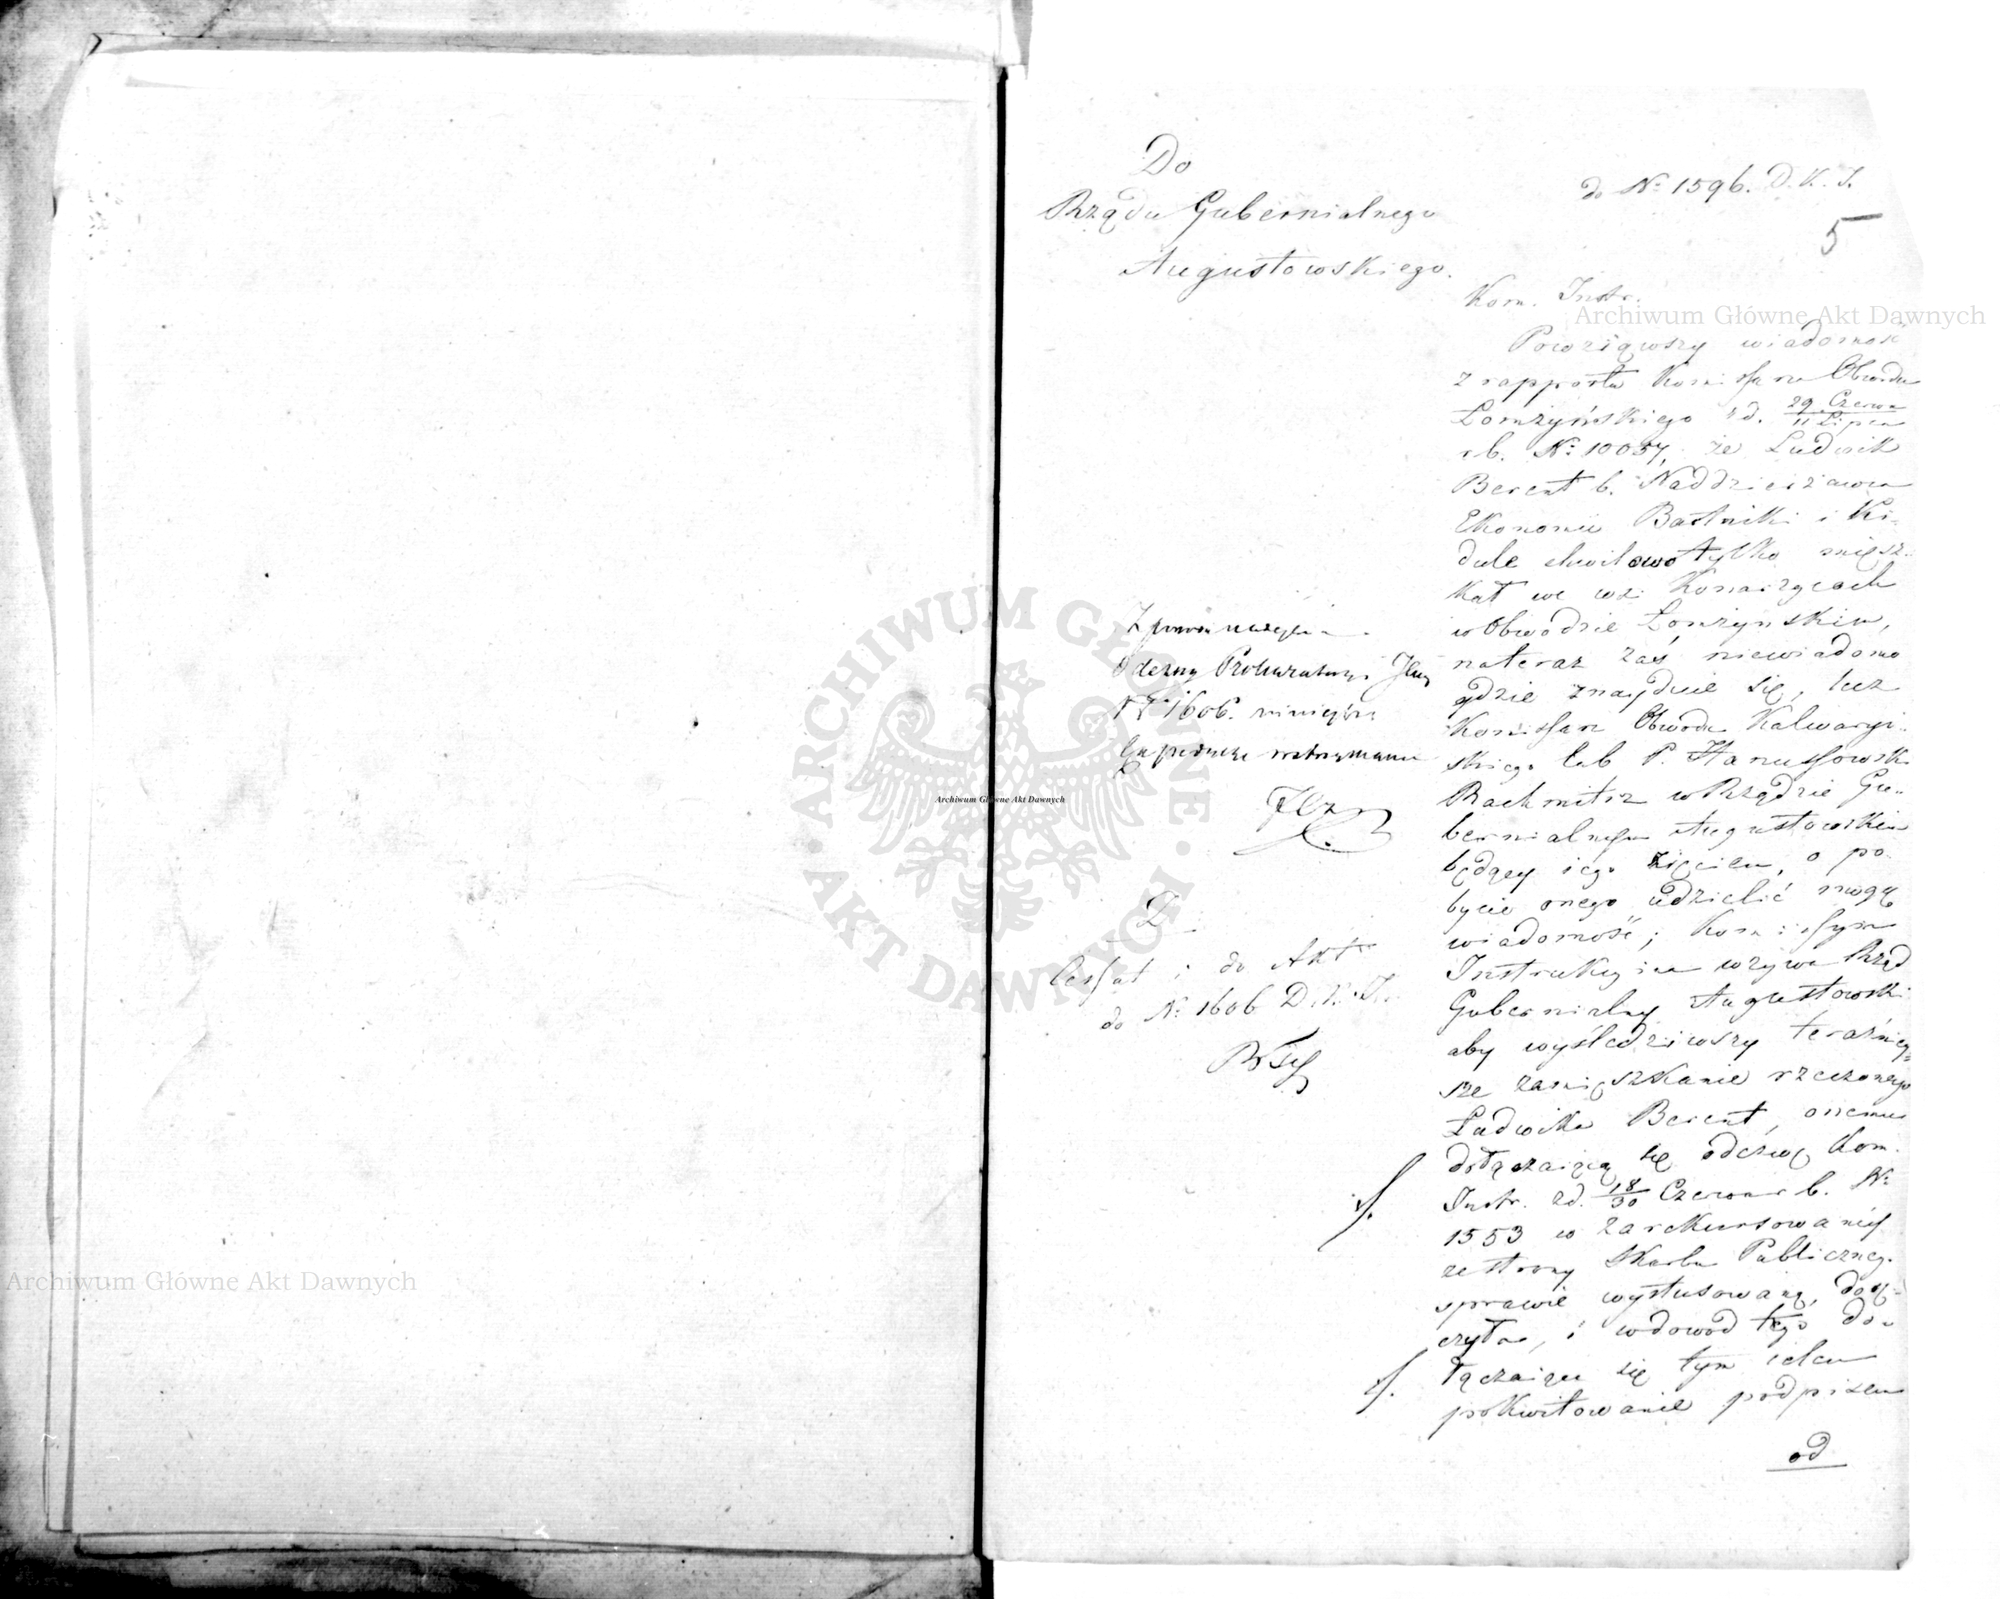 Do
Rządu Gubernialnego
Augustowskiego.
do Nº 1596. D. K. I.
5
Kom. Instr.
Powziąwszy wiadomość
z rapportu Kommissarza Obwodu
Łomżyńskiego z d. 29 Czerwca / 11 Lipca
r b. Nº 10057, że Ludwik
Berent b. Naddzierżawca
Ekonomii Bartniki i Ki-
dule chwilowo tylko miesz-
kał we wsi Konarzycach
w Obwodzie Łomżyńskim,
nateraz zaś niewiadomo
gdzie znajduie się, lecz
Kommissarz Obwodu Kalwaryi-
skiego lub P. Hanussowski
Rachmistrz w Rządzie Gu-
bernialnym Augustowskim
będący iego zięciem, o po
bycie onego udzielić mogą
wiadomość; Kommissya
Instrukcyina wzywa Rząd
Gubernialny Augustowski
aby wyśledziwszy teraźniey-
sze zamięszkanie rzeczonego
Ludwika Berent, onemu
dołączaiącą się odezwę Kom.
Instr. z d. 18/30 Czerwca r b. Nº
1553 w zarekursowanéy
ze strony Skarbu Publiczneg.
sprawie wystosowaną, dorę-
czyła, i w dowód tego do-
łączaiące się tym celem
pokwitowanie podpisem
od
Z powodu
Odezwy Prokuratoryi Jlney
Nº 1606. ninieysza
Expedycya wstrzymana
D
Cessat i do Akt
do Nº 1606 D. K. I.
Archiwum Główne Akt Dawnych
Archiwum Główne Akt Dawnych
Archiwum Główne Akt Dawnych
ARCHIWUM GŁÓWNE · AKT DAWNYCH ·